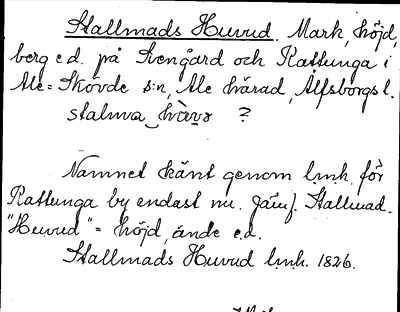 Stallmads Huvud. Mark, höjd,
berg e.d. på Svengård och Kattunga i
Ale-Skövde s:n, Ale härad, Älfsborgs l.
stalma hàvɜ ?
Namnet känt genom l.m.h. för
Kattunga by endast nu. Jämf. Stallmad.
"Huvud" = höjd, ände e.d.
Stallmads Huvud l.m.h. 1826.